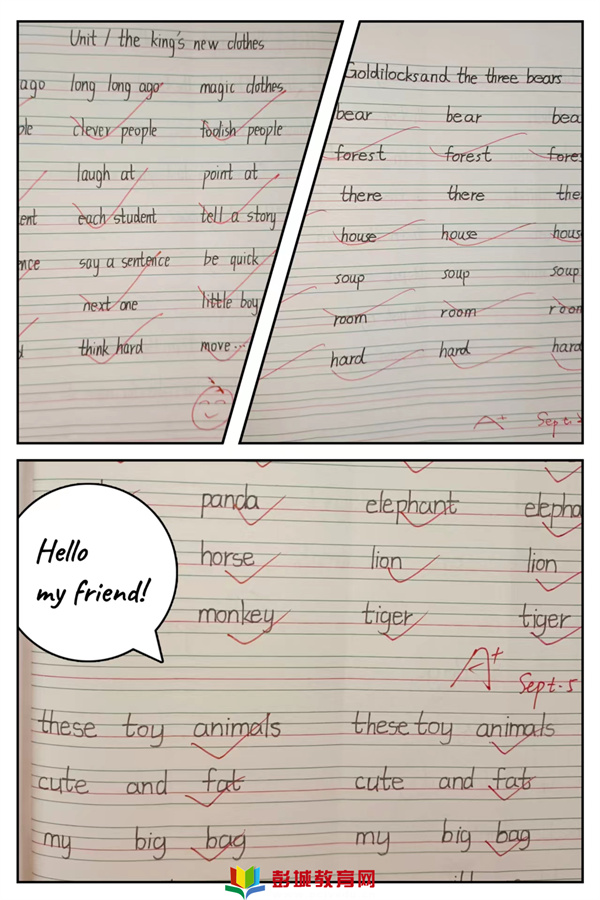 Unit 1 the king's new clothes
ago long long ago magic clothes
clever people foolish people
laugh at point at
each student tell a story
say a sentence be quick
next one little boy
think hard move...
Goldilocks and the three bears
bear bear bea
forest forest fores
there there the
house house hous
soup soup soup
room room room
hard hard hard
A+ Sept.
panda elephant elepha
horse lion lion
monkey tiger tiger
A+ Sept.5
Hello
my friend!
these toy animals these toy animals
cute and fat cute and fat
my big bag my big bag
彭城教育网